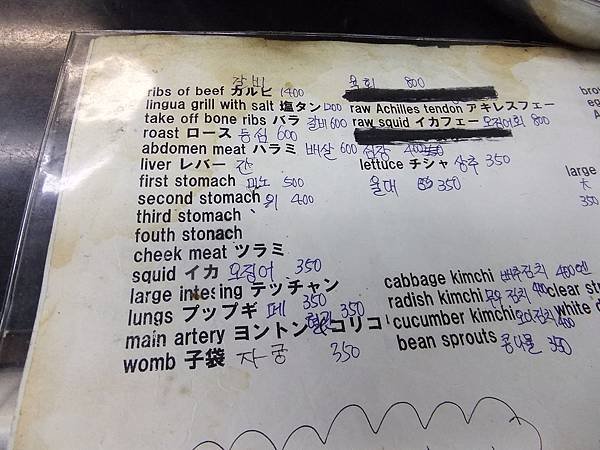 갈비 육회 800
ribs of beef カルビ 1400
lingua grill with salt 塩タン raw Achilles tendon アキレスフェー
take off bone ribs バラ 갈비 600 raw squid イカフェー 오징어회 800
roast ロース 등심 600
abdomen meat ハラミ 배살 600 심장
liver レバー 간 lettuce チシャ 상추 350
first stomach 미노 500 울대 350
second stomach 위 400
third stomach
fouth stonach
cheek meat ツラミ
squid イカ 오징어 350
large intesing テッチャン
lungs プップギ 폐 350
main artery ヨントン コリコリ 혈관 350
womb 子袋 자궁 350
cabbage kimchi 배추김치 400엔
radish kimchi 무우김치 400 clear
cucumber kimchi 오이김치 400 white
bean sprouts 콩나물 350
large
大
350